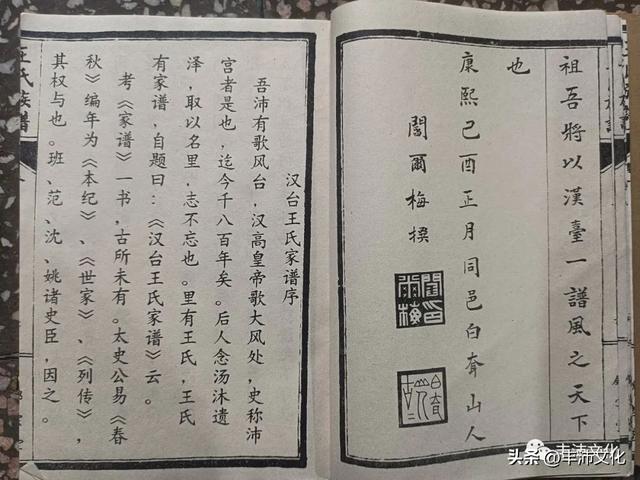 祖吾將以漢臺一譜風之天下
也
康熙己酉正月同邑白耷山人
閻爾梅撰
閻爾梅印
汉台王氏家谱序
吾沛有歌风台，汉高皇帝歌大风处，史称沛
宫者是也，迄今千八百年矣。后人念汤沐遗
泽，取以名里，志不忘也。里有王氏，王氏
有家谱，自题曰：《汉台王氏家谱》云。
考《家谱》一书，古所未有。太史公易《春
秋》编年为《本纪》、《世家》、《列传》，
其权与也。班、范、沈、姚诸史臣，因之。
王氏族谱
丰沛文化
头条 @丰沛文化